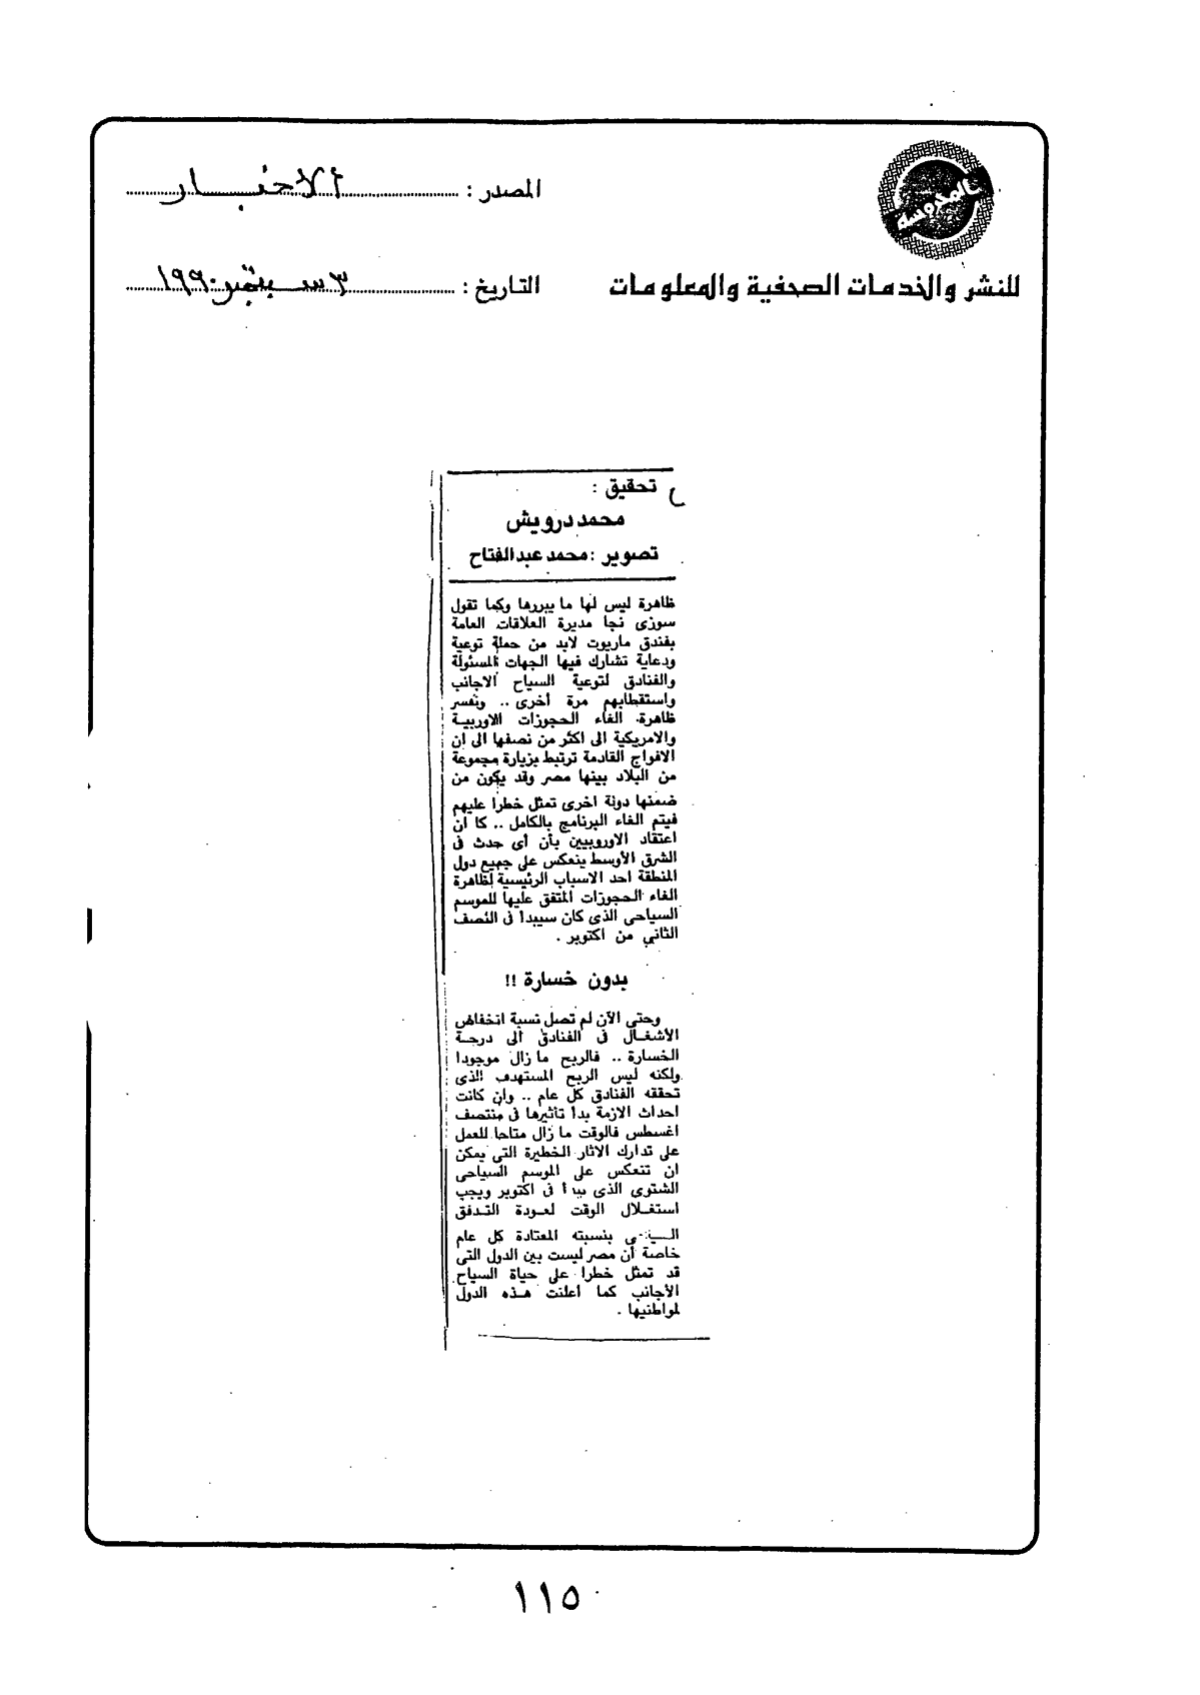 المدوسة
للنشر والخدمات الصحفية والمعلومات
المصدر : ألاخبار
التاريخ : ٣ سبتمبر ١٩٩٠
تحقيق :
محمد درويش
تصوير : محمد عبد الفتاح
ظاهرة ليس لها ما يبررها وكما تقول
سوزى نجا مديرة العلاقات العامة
بفندق ماريوت لابد من حملة توعية
ودعاية تشارك فيها الجهات المسئولة
والفنادق لتوعية السياح الاجانب
واستقطابهم مرة أخرى .. وتفسر
ظاهرة الغاء الحجوزات الاوربية
والامريكية الى اكثر من نصفها الى ان
الافواج القادمة ترتبط بزيارة مجموعة
من البلاد بينها مصر وقد يكون من
ضمنها دولة اخرى تمثل خطرا عليهم
فيتم الغاء البرنامج بالكامل .. كا ان
اعتقاد الاوروبيين بأن أى حدث فى
الشرق الأوسط ينعكس على جميع دول
المنطقة احد الاسباب الرئيسية لظاهرة
الغاء الحجوزات المتفق عليها للموسم
السياحى الذى كان سيبدأ فى النصف
الثانى من اكتوبر .
بدون خسارة !!
وحتى الآن لم تصل نسبة انخفاض
الأشغال فى الفنادق الى درجة
الخسارة .. فالربح ما زال موجودا
ولكنه ليس الربح المستهدف الذى
تحققه الفنادق كل عام .. وان كانت
احداث الازمة بدأ تأثيرها فى منتصف
اغسطس فالوقت ما زال متاحا للعمل
على تدارك الاثار الخطيرة التى يمكن
ان تنعكس على الموسم السياحى
الشتوى الذى يبدأ فى اكتوبر ويجب
استغلال الوقت لعودة التدفق
بنسبته المعتادة كل عام
خاصة أن مصر ليست بين الدول التى
قد تمثل خطرا على حياة السياح
الأجانب كما اعلنت هذه الدول
لمواطنيها .
١١٥